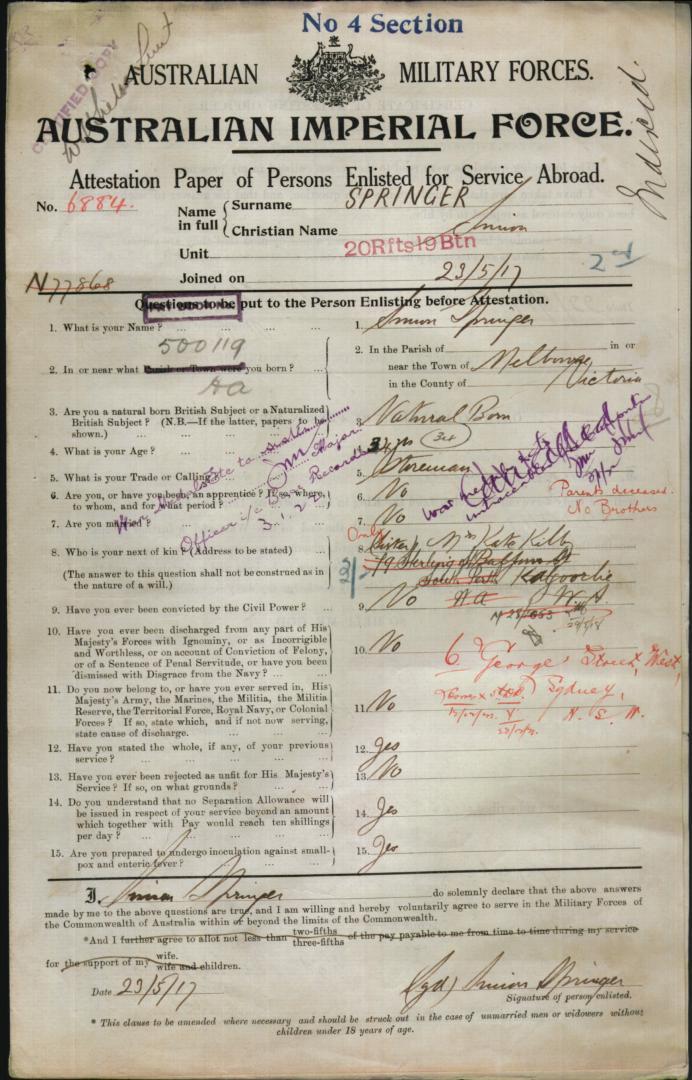 No 4 Section
CERTIFIED COPY
AUSTRALIAN MILITARY FORCES.
AUSTRALIAN IMPERIAL FORCE.
Indexed.
Attestation Paper of Persons Enlisted for Service Abroad.
No. 6884.
Name in full { Surname SPRINGER
Christian Name Simon
Unit 20Rfts19Btn
2nd
Joined on 23/5/17
N77868
Questions to be put to the Person Enlisting before Attestation.
1. What is your Name? ... ... ... 1. Simon Springer
500119
2. In or near what Parish or Town were you born? ... 2. In the Parish of in or
near the Town of Melbourne
in the County of Victoria
3. Are you a natural born British Subject or a Naturalized
British Subject? (N.B.—If the latter, papers to be
shown.) ... ... 3. Natural Born
4. What is your Age? ... ... (34)
5. What is your Trade or Calling? Storeman
6. Are you, or have you been, an apprentice? If so, where,
to whom, and for what period? 6. No
Parents deceased.
No Brothers
7. Are you married? 7. No
Major
Officer i/c Base Records
3.1.22
Only
8. Who is your next of kin? (Address to be stated) (Sister) Mrs Kate Kilby
(The answer to this question shall not be construed as in
the nature of a will.)
19 Sterling St
South Perth Kalgoorlie
W A
9. Have you ever been convicted by the Civil Power? ... 9. No
10. Have you ever been discharged from any part of His
Majesty's Forces with Ignominy, or as Incorrigible
and Worthless, or on account of Conviction of Felony,
or of a Sentence of Penal Servitude, or have you been
dismissed with Disgrace from the Navy? ... 10. No
6 George Street West,
Sydney,
N. S. W.
11. Do you now belong to, or have you ever served in, His
Majesty's Army, the Marines, the Militia, the Militia
Reserve, the Territorial Force, Royal Navy, or Colonial
Forces? If so, state which, and if not now serving,
state cause of discharge. ... ... 11. No
12. Have you stated the whole, if any, of your previous
service? ... ... ... 12. Yes
13. Have you ever been rejected as unfit for His Majesty's
Service? If so, on what grounds? ... 13. No
14. Do you understand that no Separation Allowance will
be issued in respect of your service beyond an amount
which together with Pay would reach ten shillings
per day? ... ... ... ... 14. Yes
15. Are you prepared to undergo inoculation against small-
pox and enteric fever? ... ... 15. Yes
I, Simon Springer do solemnly declare that the above answers
made by me to the above questions are true, and I am willing and hereby voluntarily agree to serve in the Military Forces of
the Commonwealth of Australia within or beyond the limits of the Commonwealth.
*And I further agree to allot not less than two-fifths three-fifths of the pay payable to me from time to time during my service
for the support of my wife. wife and children.
Date 23/5/17 (Sgd) Simon Springer
Signature of person enlisted.
* This clause to be amended where necessary and should be struck out in the case of unmarried men or widowers without
children under 18 years of age.